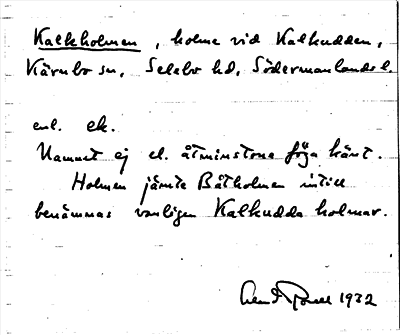 Kalkholmen, holme vid Kalkudden,
Kärnbo sn, Selebo hd, Södermanlands l.
enl. ek.
Namnet ej el. åtminstone föga känt.
Holmen jämte Båtholmen intill
benämnas vanligen Kalkudda holmar.
1932